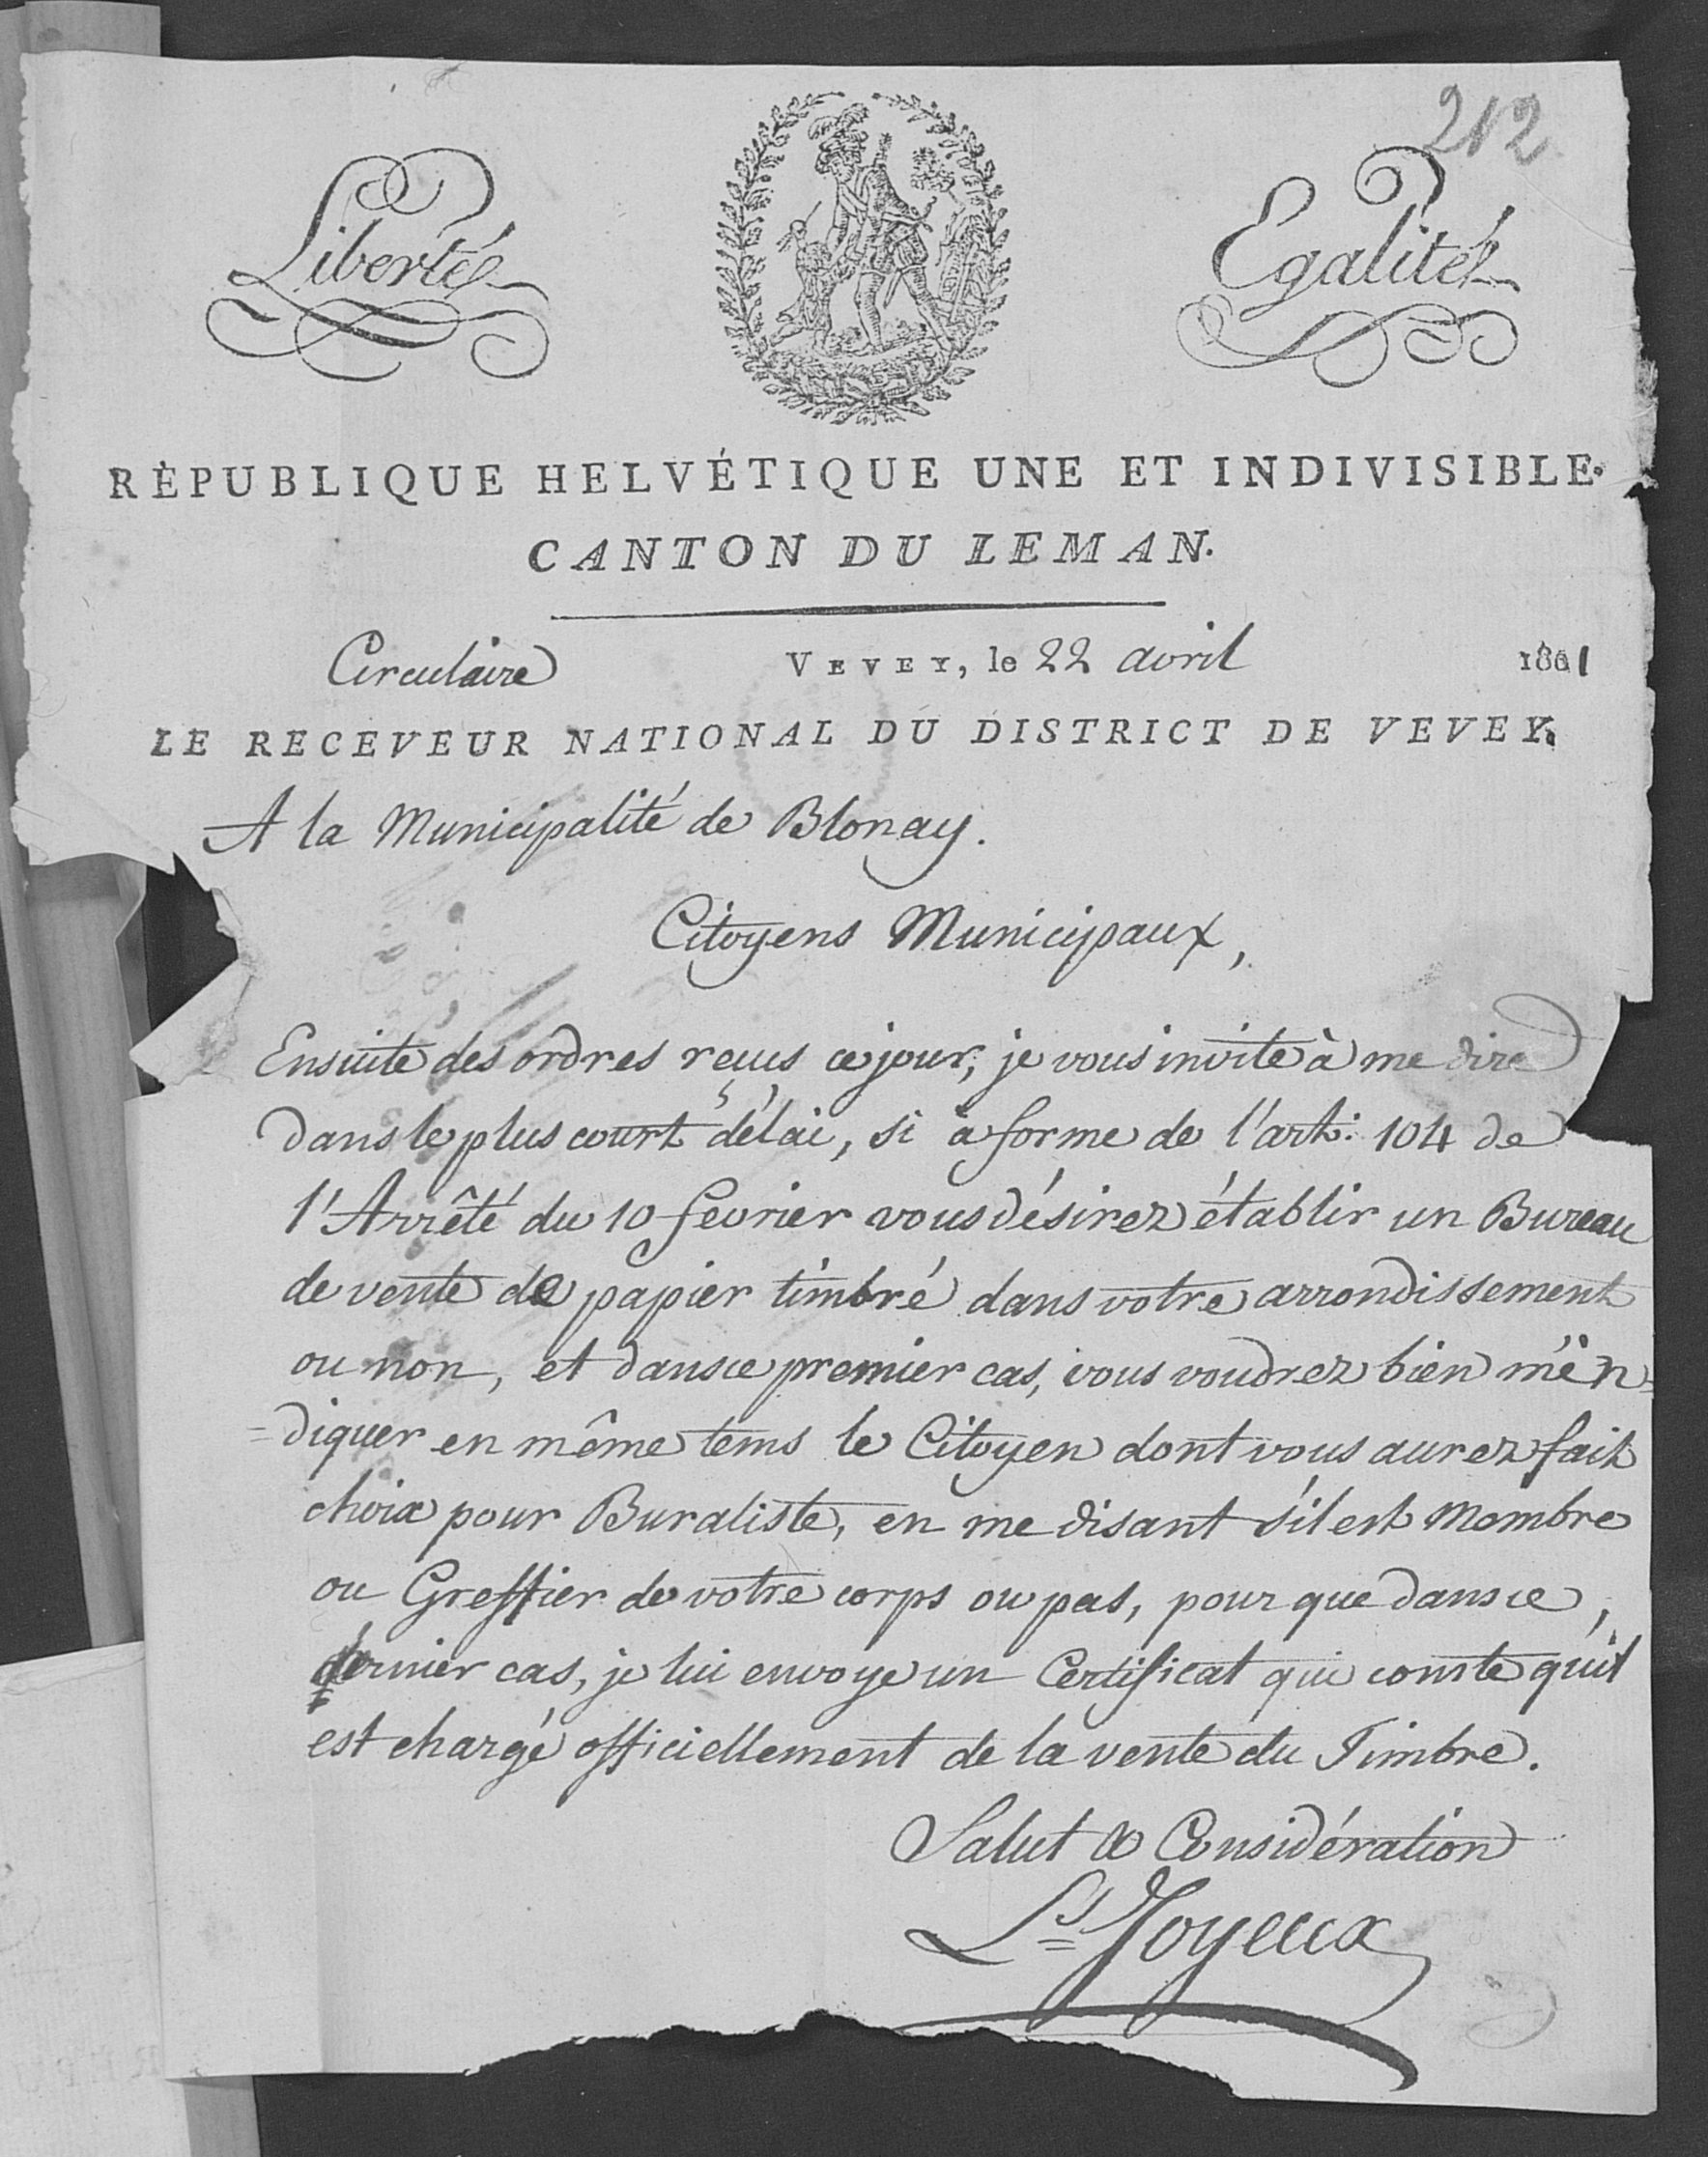 212
Liberté
Egalité
RÉPUBLIQUE HELVÉTIQUE UNE ET INDIVISIBLE.
CANTON DU LEMAN.
Circulaire VEVEY, le 22 avril 1801
LE RECEVEUR NATIONAL DU DISTRICT DE VEVEY.
A la Municipalité de Blonay.
Citoyens Municipaux,
Ensuite des ordres reçus ce jour, je vous invite à me dire
dans le plus court délai, si à forme de l'art: 104 de
l'Arrêté du 10 fevrier vous désirez établir un Bureau
de vente de papier timbré dans votre arrondissement
ou non, et dans ce premier cas, vous voudrez bien m'in=
=diquer en même tems le Citoyen dont vous aurez fait
choix pour Buraliste, en me disant s'il est Membre
ou Greffier de votre corps ou pas, pour que dans ce,
dernier cas, je lui envoye un Certificat qui conste qu'il
est chargé officiellement de la vente du Timbre.
Salut & Considération
Ls= Joyeux